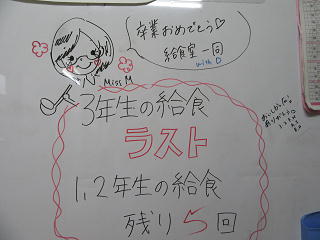 卒業おめでとう♡
給食室一同
with D
Miss M
3年生の給食
ラスト
1,2年生の給食
残り5回